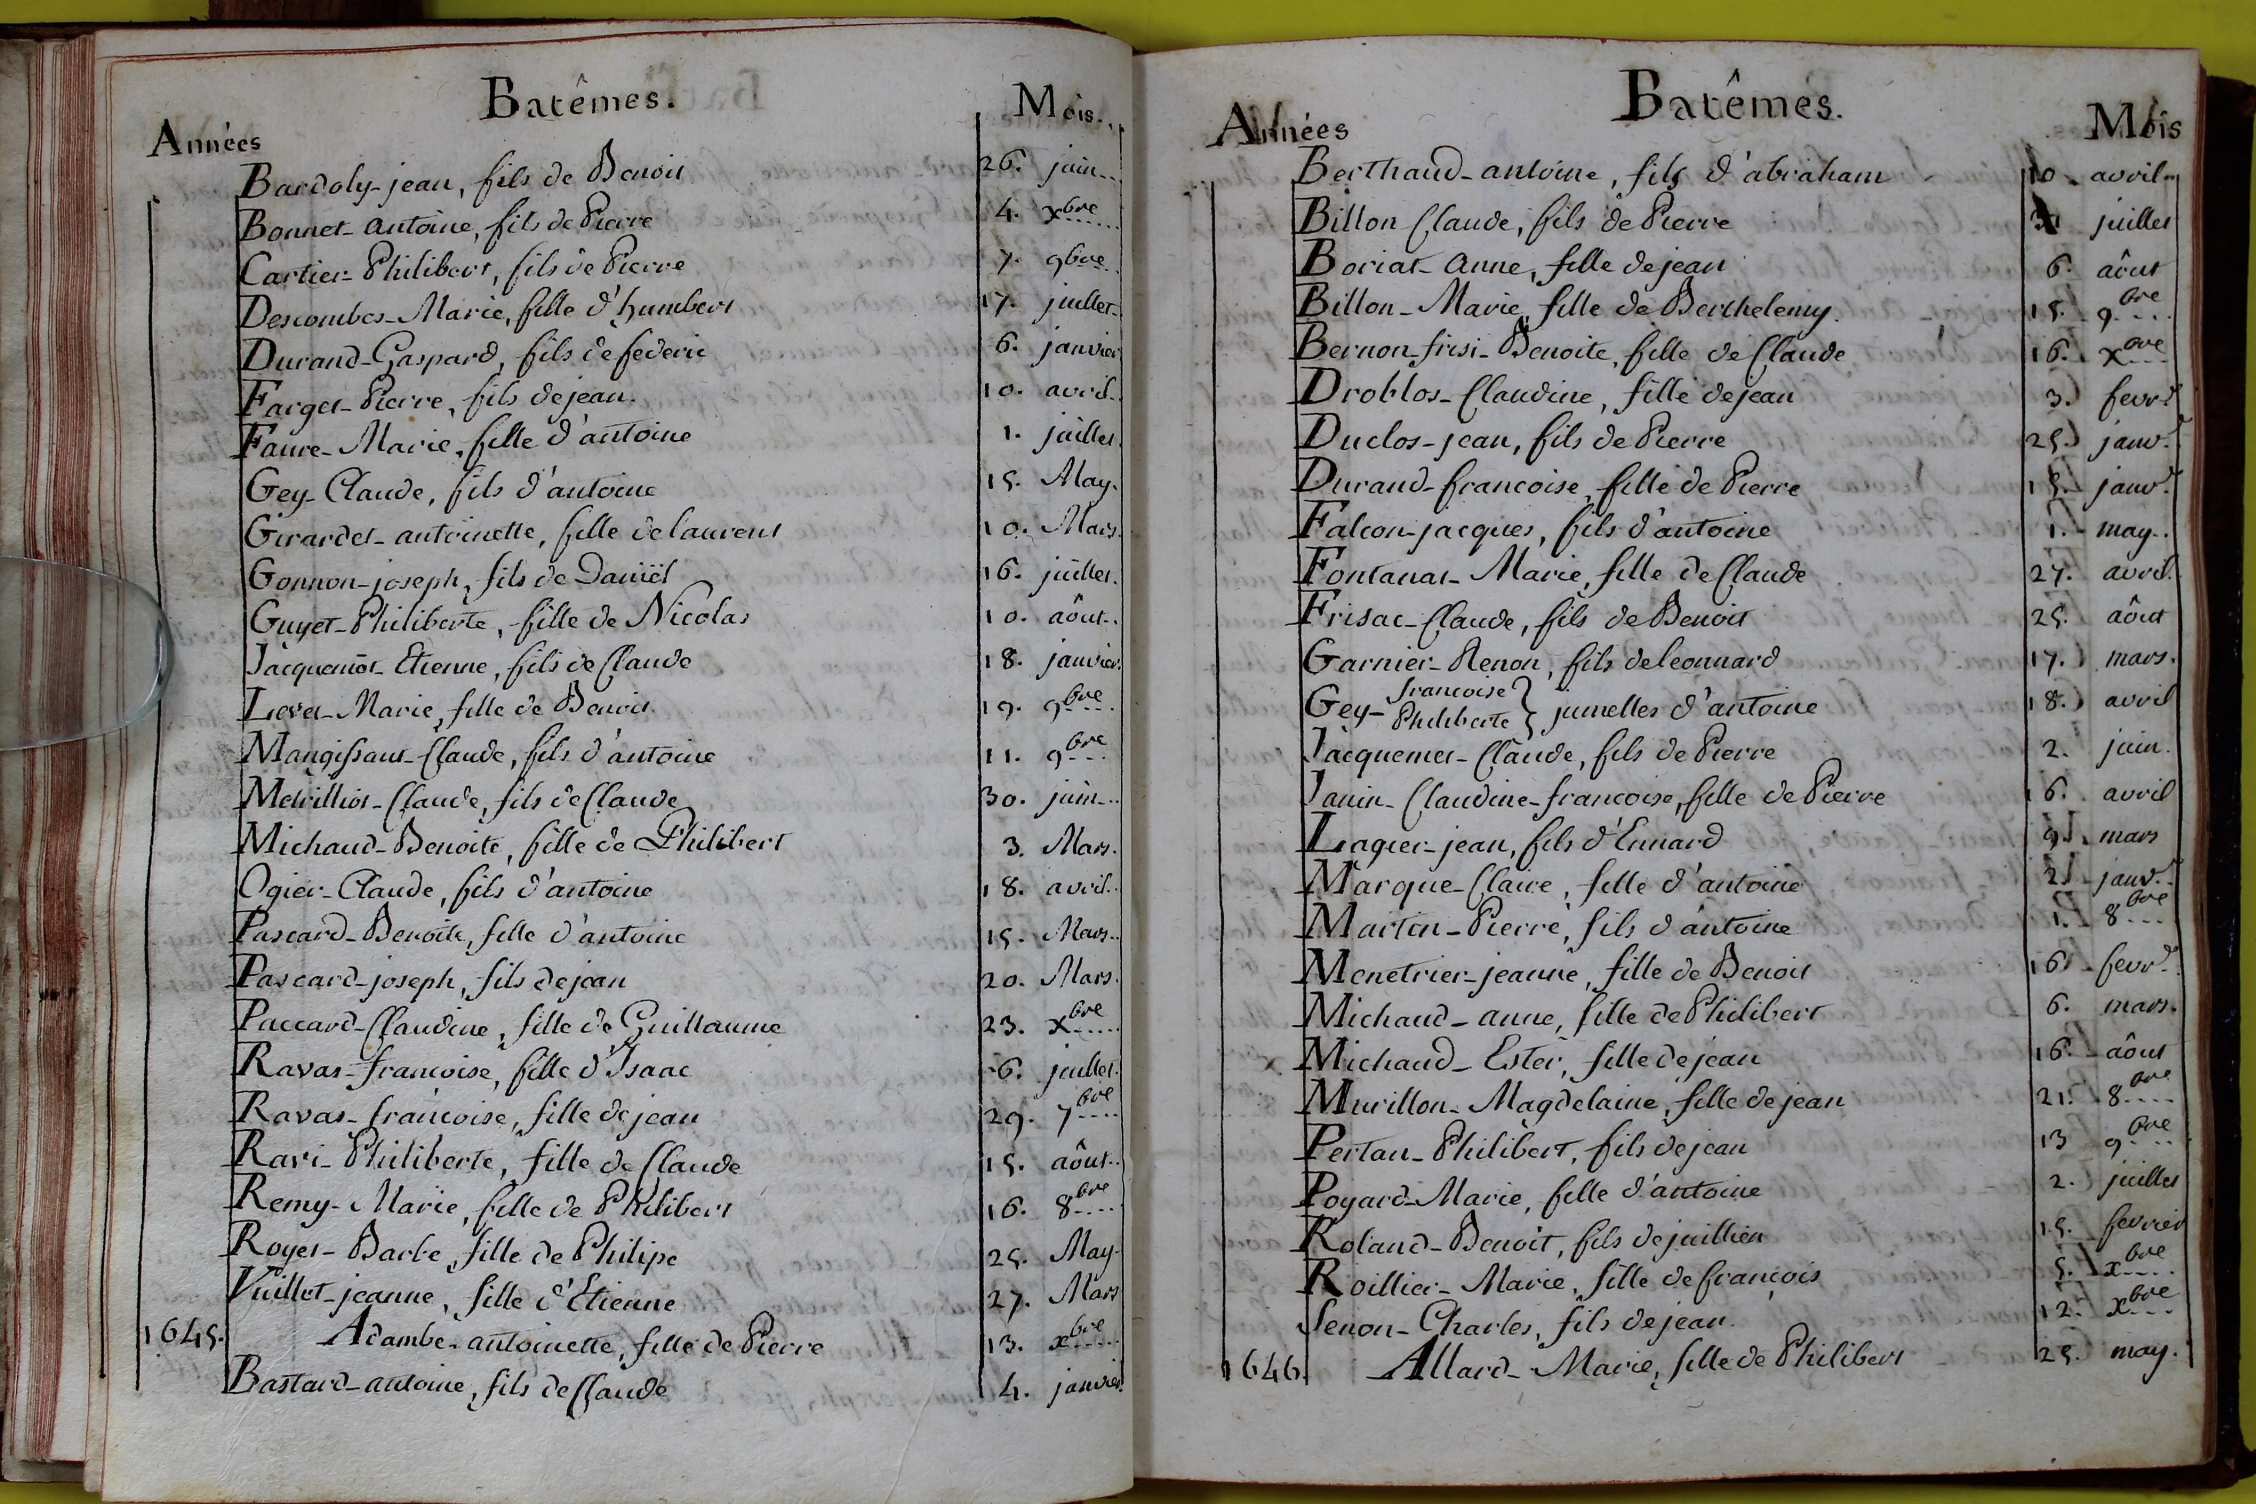 Batêmes.
Années Mois.
Bardoly-jean, fils de Benoit 26. juin
Bonnet-antoine, fils de Pierre 4. xbre
Cartier-Philibert, fils de Pierre 7. 9bre
Descombes-Marie, fille d'humbert 17. juillet
Durand-Gaspard, fils de federic 6. janvier
Farget-Pierre, fils de jean 10. avril
Faure-Marie, fille d'antoine 1. juillet
Gey-Claude, fils d'antoine 15. May.
Girardet-antoinette, fille de laurent 10. Mars
Gonnon-joseph, fils de Daniël 16. juillet.
Guyet-Philiberte, fille de Nicolas 10. aôut
Jacquemot-Etienne, fils de Claude 18. janvier.
Levet-Marie, fille de Benoit 19. 9bre
Mangissant-Claude, fils d'antoine 11. 9bre
Metrilliot-Claude, fils de Claude 30. juin
Michaud-Benoite, fille de Philibert 3. Mars.
Ogier-Claude, fils d'antoine 18. avril
Pascard-Benoite, fille d'antoine 15. Mars
Pascard-joseph, fils de jean 20. Mars.
Paccard-Claudine, fille de Guillaume 23. xbre
Ravat-francoise, fille d'Isaac 6. juillet.
Ravat-francoise, fille de jean 29. 7bre
Ravi-Philiberte, fille de Claude 15. aôut
Remy-Marie, fille de Philibert 16. 8bre
Royet-Barbe, fille de Philipe 25. May
Vuillet-jeanne, fille d'Etienne 27. Mars
1645. Adambe-antoinette, fille de Pierre 13. xbre
Bastard-antoine, fils de Claude 4. janvier.
Batêmes.
Années Mois
Berthaud-antoine, fils d'abraham 10 avril
Billon Claude, fils de Pierre juillet
Boriat-Anne, fille de jean 6. aôut
Billon-Marie, fille de Berthelemy. 15. 9bre
Bernon-frisi-Benoite, fille de Claude 16. xbre
Droblos-Claudine, fille de jean 3. fevr.
Duclos-jean, fils de Pierre 25. janv.
Durand-francoise, fille de Pierre 15. janv.
Falcon-jacques, fils d'antoine 1. may.
Fontanat-Marie, fille de Claude 27. avril.
Frisac-Claude, fils de Benoit 25. aôut
Garnier-Renon, fils de leonnard 17. mars.
Gey- francoise Philiberte } jumelles d'antoine 18. avril
Jacquemet-Claude, fils de Pierre 2. juin.
Janin-Claudine-francoise, fille de Pierre 16. avril
Lagier-jean, fils d'Ennard 9. mars
Marque-Claire, fille d'antoine 2. janv.
Martin-Pierre, fils d'antoine 1. 8bre
Menetrier-jeanne, fille de Benoit 16. fevr.
Michaud-anne, fille de Philibert 6. mars.
Michaud-Ester, fille de jean 16. aôut
Murillon-Magdelaine, fille de jean 21. 8bre
Pertan-Philibert, fils de jean 13 9bre
Poyard-Marie, fille d'antoine 2. juillet
Roland-Benoit, fils de juillien 15. fevrier
Roillier-Marie, fille de françois 5. xbre
Senon-Charles, fils de jean. 12. xbre
1646. Allard-Marie, fille de Philibert 25. may.